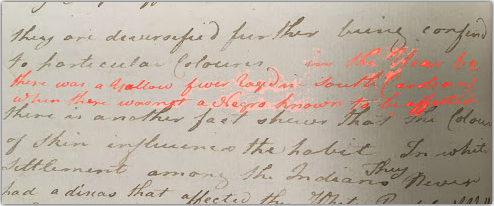 they are diversified further being confind
to particular Colours, in the Year
there was a Yallow fiver raged in South Carolina
when there was not a Negro known to be affected
there is another fact shews that the Colour
of skin influences the habit In white
settlement among the Indians They Never
had a diseas that affected the White